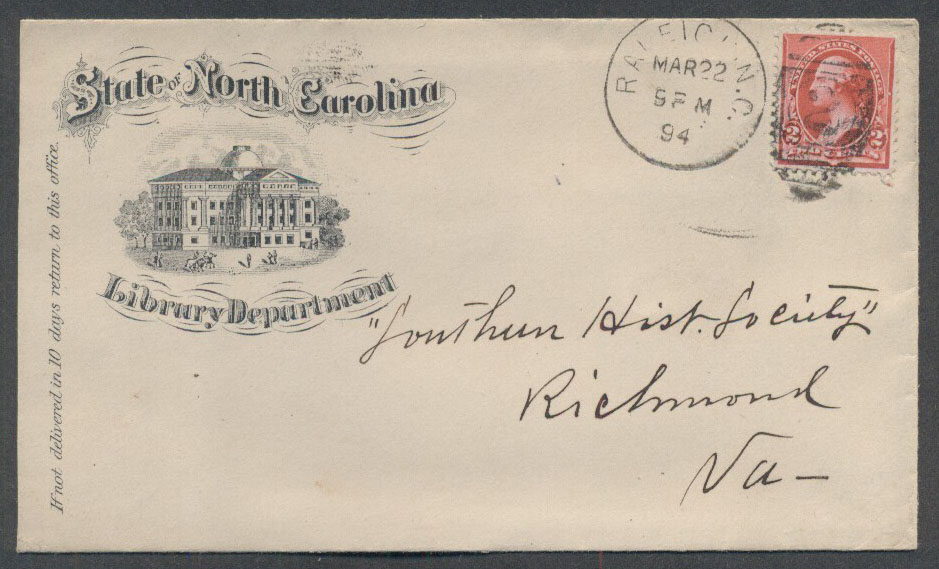 State of North Carolina
Library Department
If not delivered in 10 days return to this office.
RALEIGH, N.C.
MAR 22
9 PM
94
UNITED STATES POSTAGE
2 2
"Southern Hist. Society"
Richmond
Va—